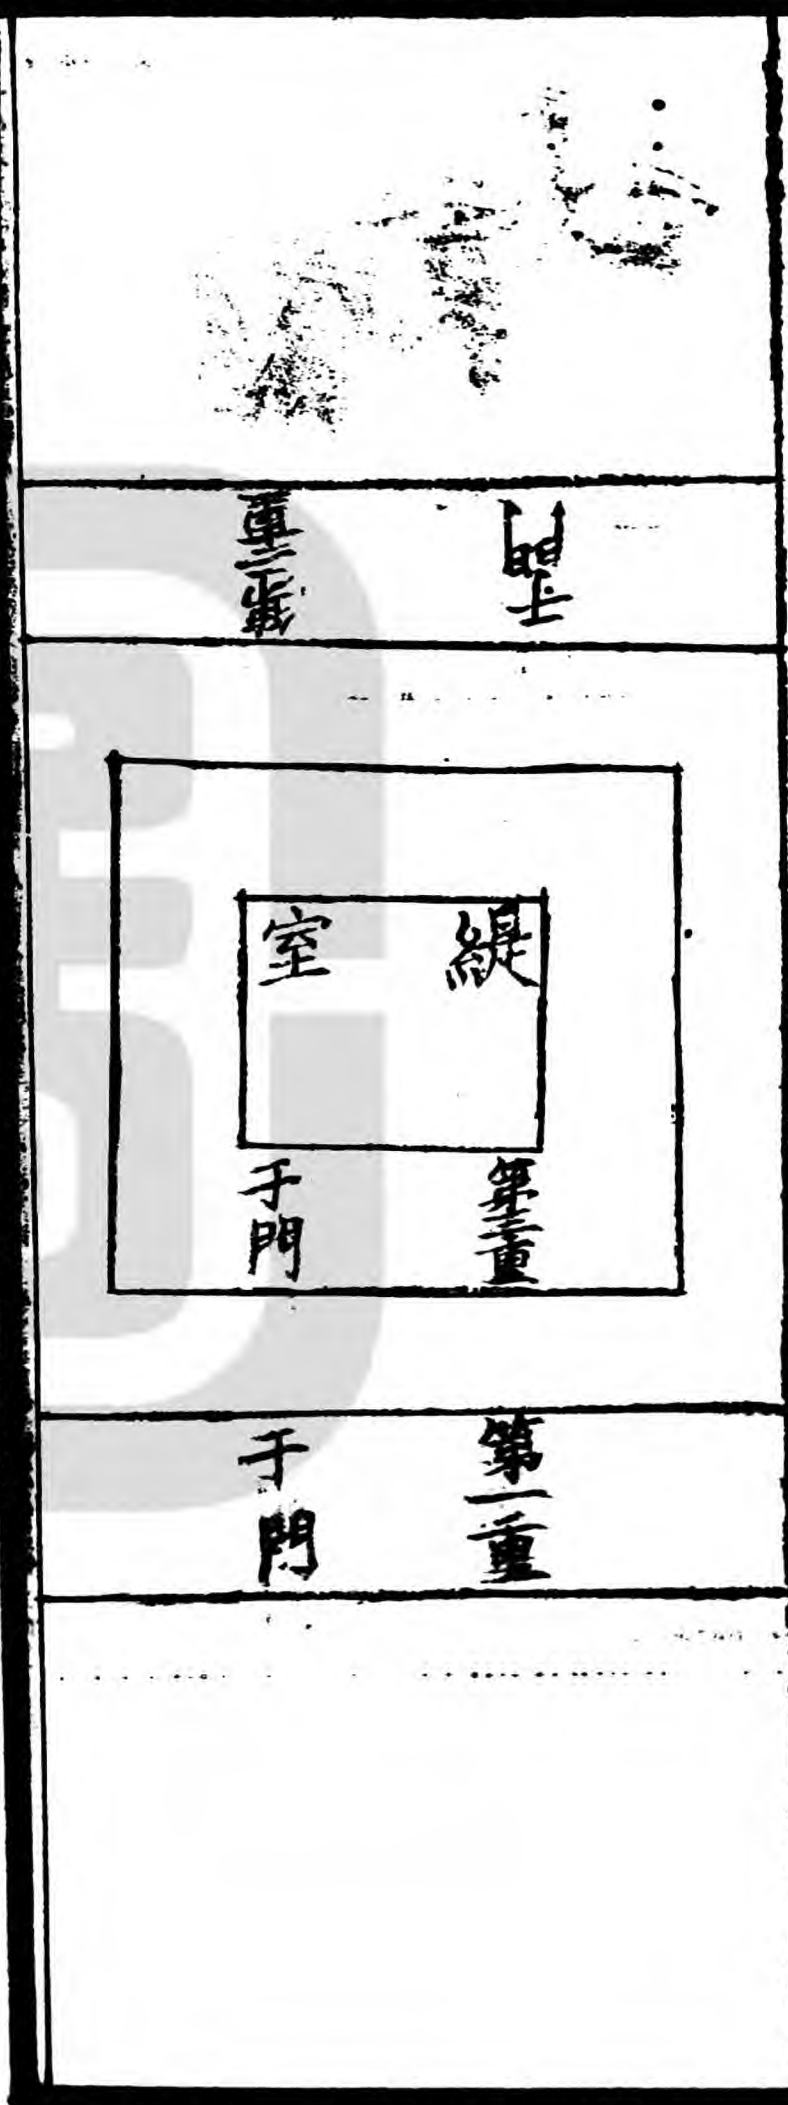 第二重
午門
緹室
第三重
子門
第一重
子門